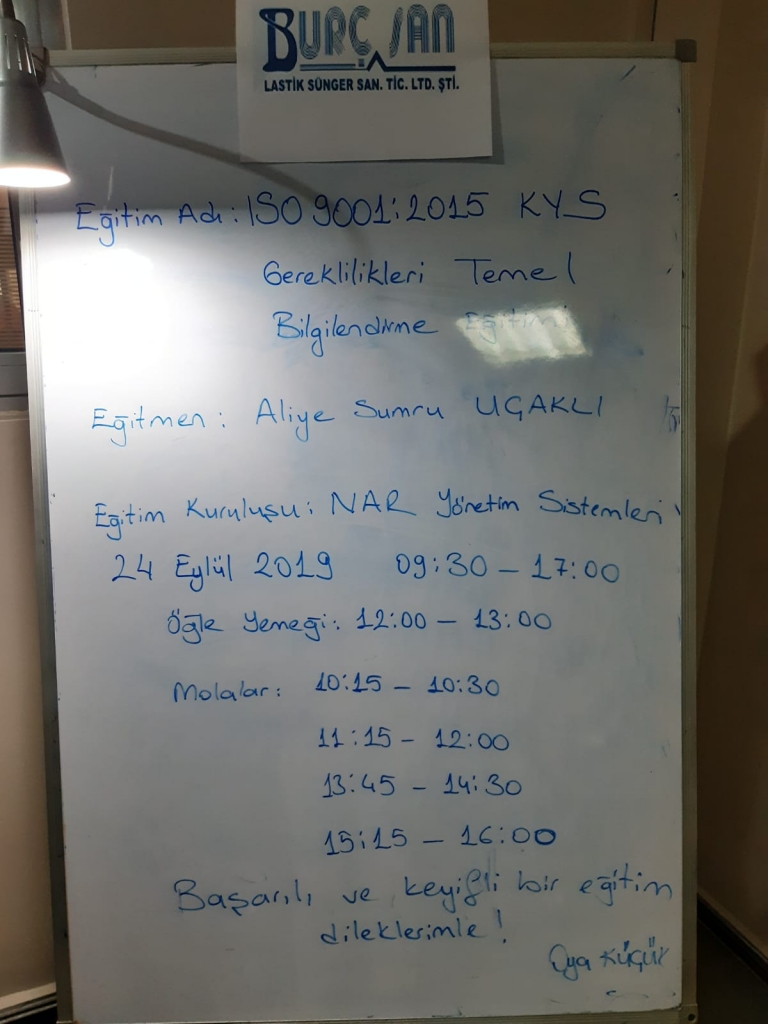 BURÇSAN
LASTİK SÜNGER SAN. TİC. LTD. ŞTİ.
Eğitim Adı: ISO 9001:2015 KYS
Gereklilikleri Temel
Bilgilendirme Eğitimi
Eğitmen: Aliye Sumru UÇAKLI
Eğitim Kuruluşu: NAR Yönetim Sistemleri
24 Eylül 2019 09:30 – 17:00
Öğle Yemeği: 12:00 – 13:00
Molalar: 10:15 – 10:30
11:15 – 12:00
13:45 – 14:30
15:15 – 16:00
Başarılı ve keyifli bir eğitim
dileklerimle!
Oya KÜÇÜK